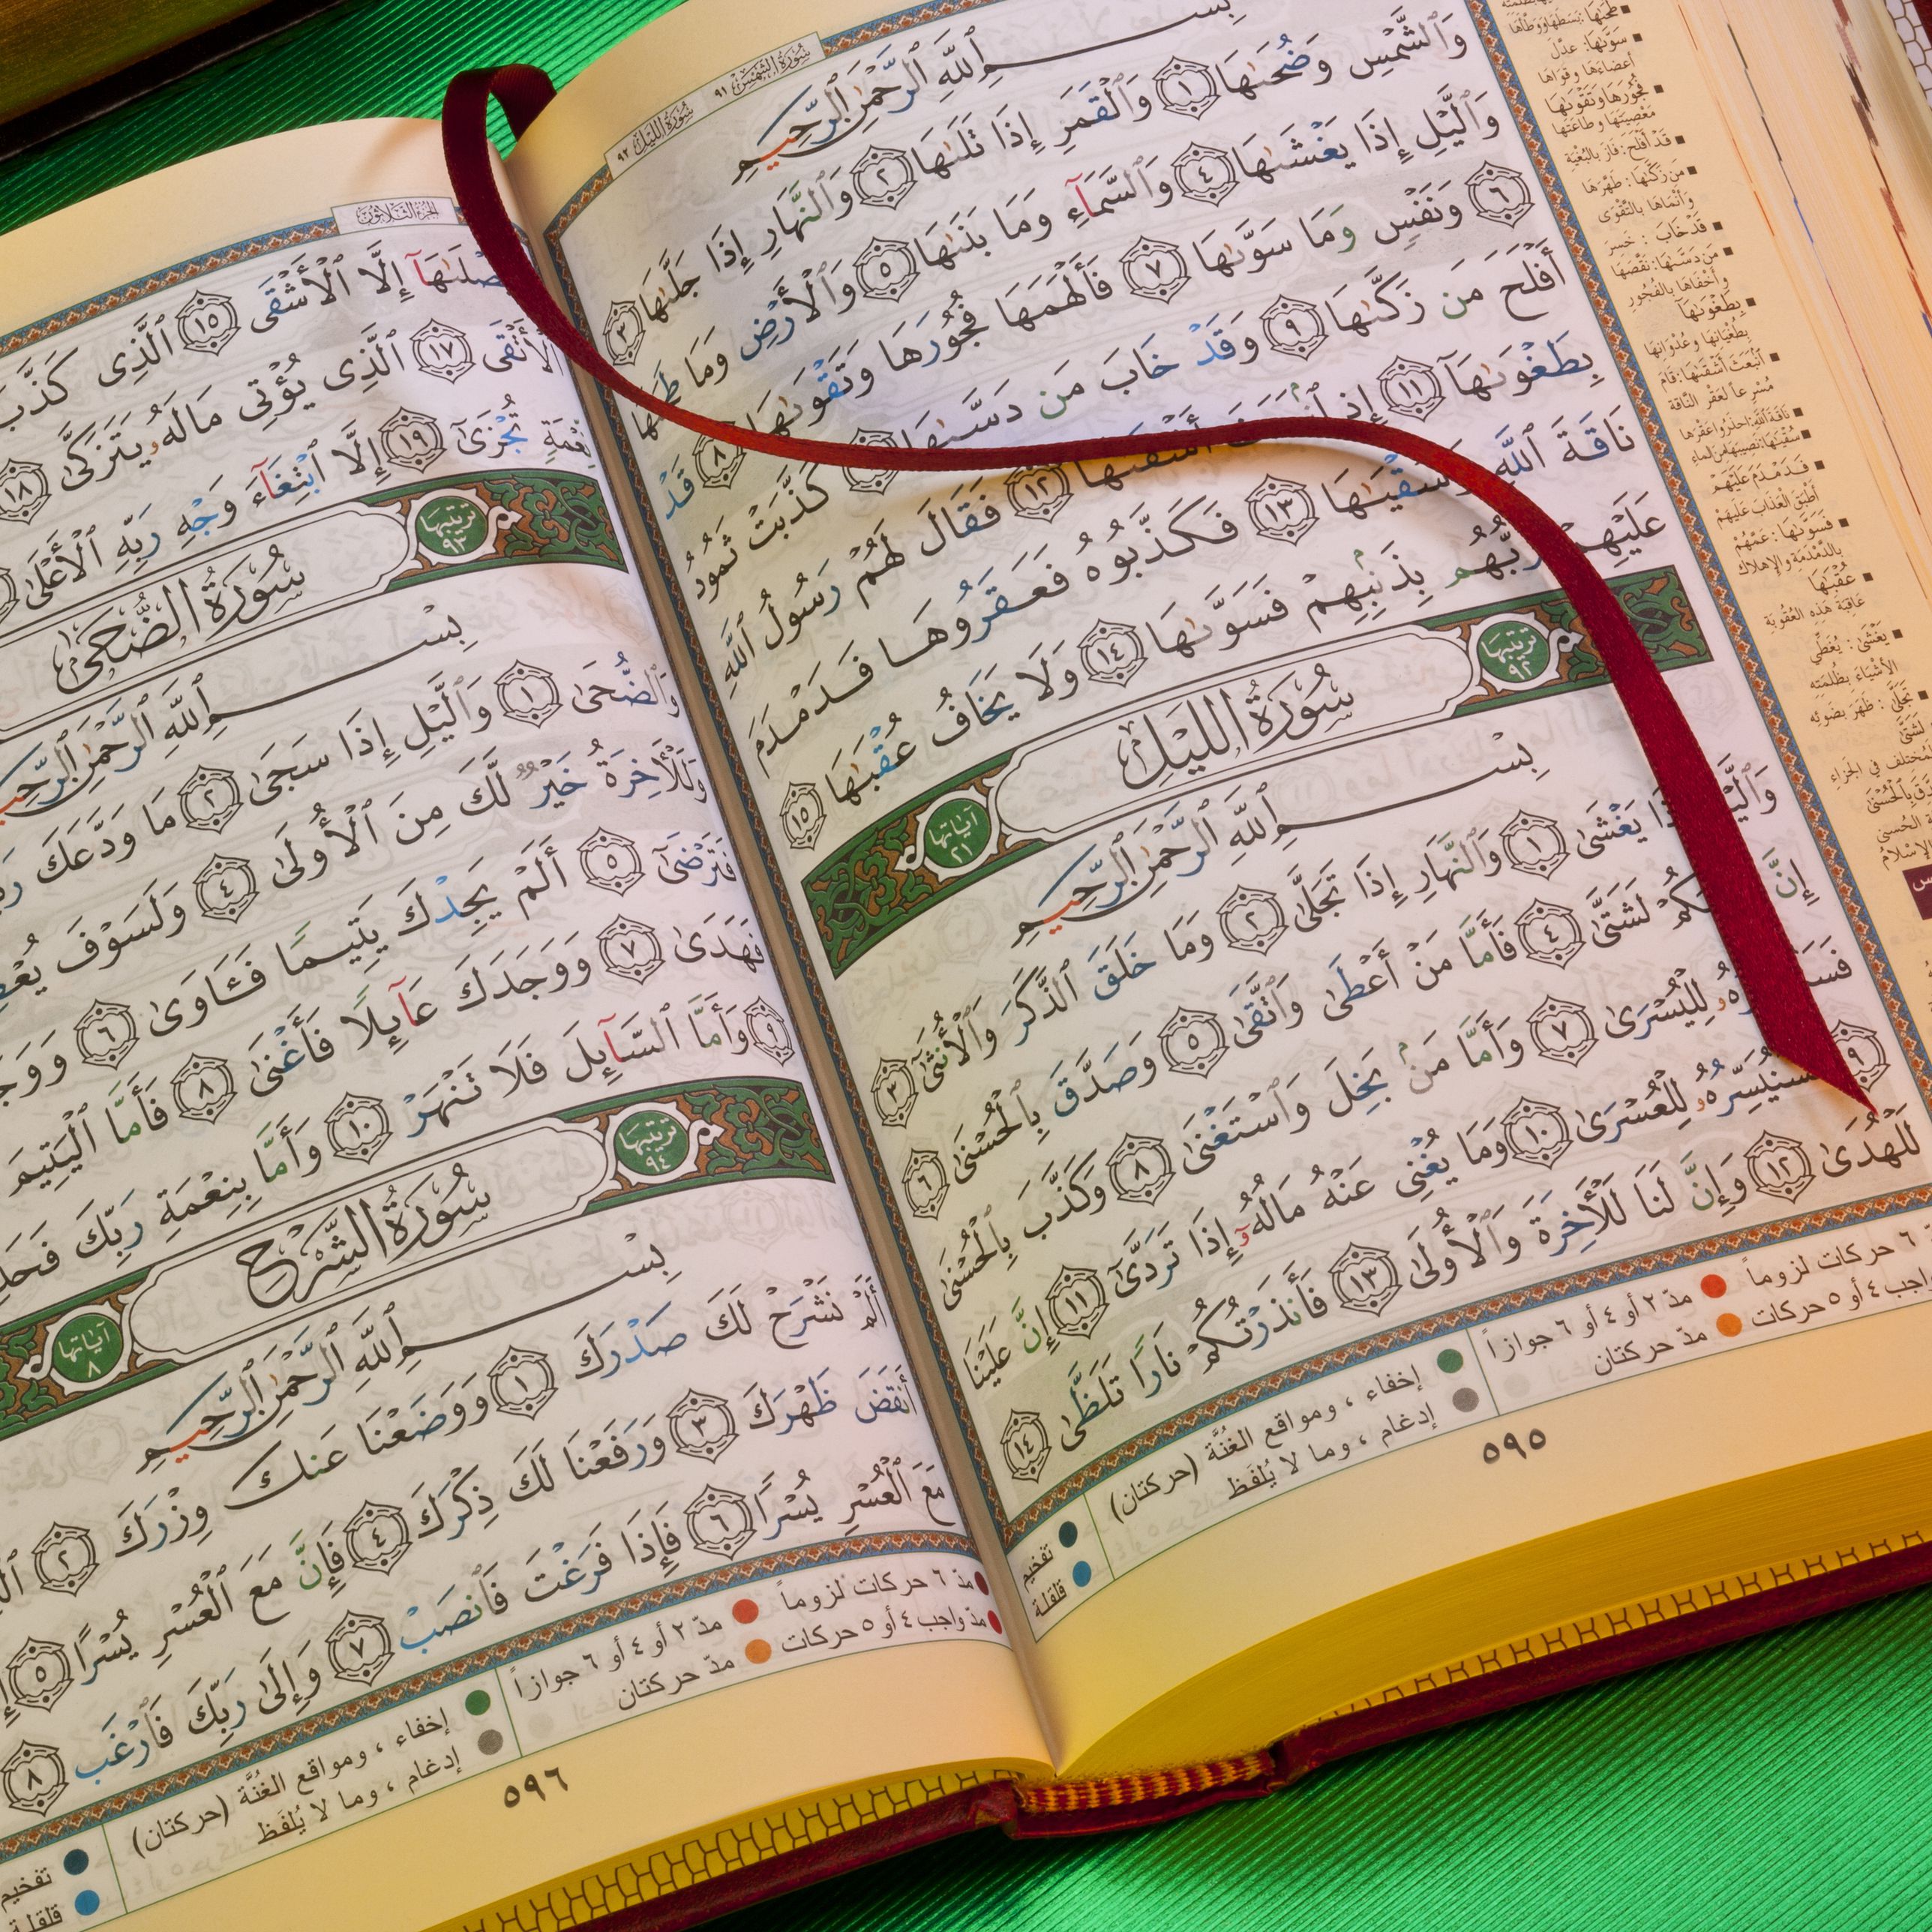 سُورَةُ الشَّمْسِ ٩١
سُورَةُ اللَّيْلِ ٩٢
بِسْمِ ٱللَّهِ ٱلرَّحْمَٰنِ ٱلرَّحِيمِ
وَٱلشَّمْسِ وَضُحَىٰهَا ١ وَٱلْقَمَرِ إِذَا تَلَىٰهَا ٢ وَٱلنَّهَارِ إِذَا جَلَّىٰهَا ٣
وَٱلَّيْلِ إِذَا يَغْشَىٰهَا ٤ وَٱلسَّمَآءِ وَمَا بَنَىٰهَا ٥ وَٱلْأَرْضِ وَمَا طَحَىٰهَا
٦ وَنَفْسٍ وَمَا سَوَّىٰهَا ٧ فَأَلْهَمَهَا فُجُورَهَا وَتَقْوَىٰهَا ٨ قَدْ
أَفْلَحَ مَن زَكَّىٰهَا ٩ وَقَدْ خَابَ مَن دَسَّىٰهَا كَذَّبَتْ ثَمُودُ
بِطَغْوَىٰهَآ ١١ إِذِ أَشْقَىٰهَا ١٢ فَقَالَ لَهُمْ رَسُولُ ٱللَّهِ
نَاقَةَ ٱللَّهِ وَسُقْيَٰهَا ١٣ فَكَذَّبُوهُ فَعَقَرُوهَا فَدَمْدَمَ
عَلَيْهِمْ رَبُّهُم بِذَنۢبِهِمْ فَسَوَّىٰهَا ١٤ وَلَا يَخَافُ عُقْبَٰهَا ١٥
ترتيبها ٩٢ سُورَةُ اللَّيْلِ آياتها ٢١
بِسْمِ ٱللَّهِ ٱلرَّحْمَٰنِ ٱلرَّحِيمِ
وَٱلَّيْلِ إِذَا يَغْشَىٰ ١ وَٱلنَّهَارِ إِذَا تَجَلَّىٰ ٢ وَمَا خَلَقَ ٱلذَّكَرَ وَٱلْأُنثَىٰٓ ٣
إِنَّ سَعْيَكُمْ لَشَتَّىٰ ٤ فَأَمَّا مَنْ أَعْطَىٰ وَٱتَّقَىٰ ٥ وَصَدَّقَ بِٱلْحُسْنَىٰ ٦
فَسَنُيَسِّرُهُۥ لِلْيُسْرَىٰ ٧ وَأَمَّا مَنۢ بَخِلَ وَٱسْتَغْنَىٰ ٨ وَكَذَّبَ بِٱلْحُسْنَىٰ
٩ فَسَنُيَسِّرُهُۥ لِلْعُسْرَىٰ ١٠ وَمَا يُغْنِى عَنْهُ مَالُهُۥٓ إِذَا تَرَدَّىٰٓ ١١ إِنَّ عَلَيْنَا
لَلْهُدَىٰ ١٢ وَإِنَّ لَنَا لَلْءَاخِرَةَ وَٱلْأُولَىٰ ١٣ فَأَنذَرْتُكُمْ نَارًا تَلَظَّىٰ ١٤
٦ حركات لزوماً مدّ ٢ أو ٤ أو ٦ جوازاً إخفاء ، ومواقع الغُنَّة (حركتان) تفخيم
واجب ٤ أو ٥ حركات مدّ حركتان إدغام ، وما لا يُلفَظ قلقلة
٥٩٥
طَحَىٰهَا: بَسَطَهَا وَوَطَّأَهَا
سَوَّىٰهَا: عدَّل
أعضاءَها وقُوَاها
فُجُورَهَا وَتَقْوَىٰهَا
مَعْصِيَتَهَا وطاعَتَها
قَدْ أَفْلَحَ: فازَ بالبُغْيَة
مَن زَكَّىٰهَا: طَهَّرَها
وأنْمَاهَا بالتَّقْوَى
قَدْ خَابَ: خَسِرَ
مَن دَسَّىٰهَا: نَقَصَها
وأخْفَاهَا بالفُجُور
بِطَغْوَىٰهَآ
بطُغْيانِها وعُدْوانِها
ٱنۢبَعَثَ أَشْقَىٰهَا: قامَ
مُسْرِعاً لعَقْر النَّاقة
نَاقَةَ ٱللَّهِ: احذَروا عَقْرَها
سُقْيَٰهَا: نصيبَها من الماء
فَدَمْدَمَ عَلَيْهِمْ
أَطْبَقَ العَذَابَ عَلَيْهِمْ
فَسَوَّىٰهَا: عَمَّهُمْ
بالدَّمْدَمَة والإهلاك
عُقْبَٰهَا
عَاقِبَةَ هَذِهِ العُقُوبَة
يَغْشَىٰ: يُغَطِّي
الأشْيَاءَ بِظُلْمَتِه
تَجَلَّىٰ: ظَهَرَ بضَوْئِه
لَشَتَّىٰ
الجُزءُ الثَّلَاثُون
يَصْلَىٰهَآ إِلَّا ٱلْأَشْقَى ١٥ ٱلَّذِى كَذَّبَ
ٱلْأَتْقَى ١٧ ٱلَّذِى يُؤْتِى مَالَهُۥ يَتَزَكَّىٰ ١٨
نِّعْمَةٍ تُجْزَىٰٓ ١٩ إِلَّا ٱبْتِغَآءَ وَجْهِ رَبِّهِ ٱلْأَعْلَىٰ
ترتيبها ٩٣ سُورَةُ الضُّحَىٰ
بِسْمِ ٱللَّهِ ٱلرَّحْمَٰنِ ٱلرَّحِيمِ
وَٱلضُّحَىٰ ١ وَٱلَّيْلِ إِذَا سَجَىٰ ٢ مَا وَدَّعَكَ
وَلَلْءَاخِرَةُ خَيْرٌ لَّكَ مِنَ ٱلْأُولَىٰ ٤ وَلَسَوْفَ
فَتَرْضَىٰٓ ٥ أَلَمْ يَجِدْكَ يَتِيمًا فَـَٔاوَىٰ ٦
فَهَدَىٰ ٧ وَوَجَدَكَ عَآئِلًا فَأَغْنَىٰ ٨ فَأَمَّا ٱلْيَتِيمَ
٩ وَأَمَّا ٱلسَّآئِلَ فَلَا تَنْهَرْ ١٠ وَأَمَّا بِنِعْمَةِ رَبِّكَ
ترتيبها ٩٤ سُورَةُ الشَّرْحِ آياتها ٨
بِسْمِ ٱللَّهِ ٱلرَّحْمَٰنِ ٱلرَّحِيمِ
أَلَمْ نَشْرَحْ لَكَ صَدْرَكَ ١ وَوَضَعْنَا عَنكَ وِزْرَكَ ٢
أَنقَضَ ظَهْرَكَ ٣ وَرَفَعْنَا لَكَ ذِكْرَكَ ٤ فَإِنَّ مَعَ ٱلْعُسْرِ يُسْرًا ٥
مَعَ ٱلْعُسْرِ يُسْرًا ٦ فَإِذَا فَرَغْتَ فَٱنصَبْ ٧ وَإِلَىٰ رَبِّكَ فَٱرْغَب ٨
مدّ ٦ حركات لزوماً مدّ ٢ أو ٤ أو ٦ جوازاً إخفاء ، ومواقع الغُنَّة (حركتان) تفخيم
مدّ واجب ٤ أو ٥ حركات مدّ حركتان إدغام ، وما لا يُلفَظ قلقلة
٥٩٦